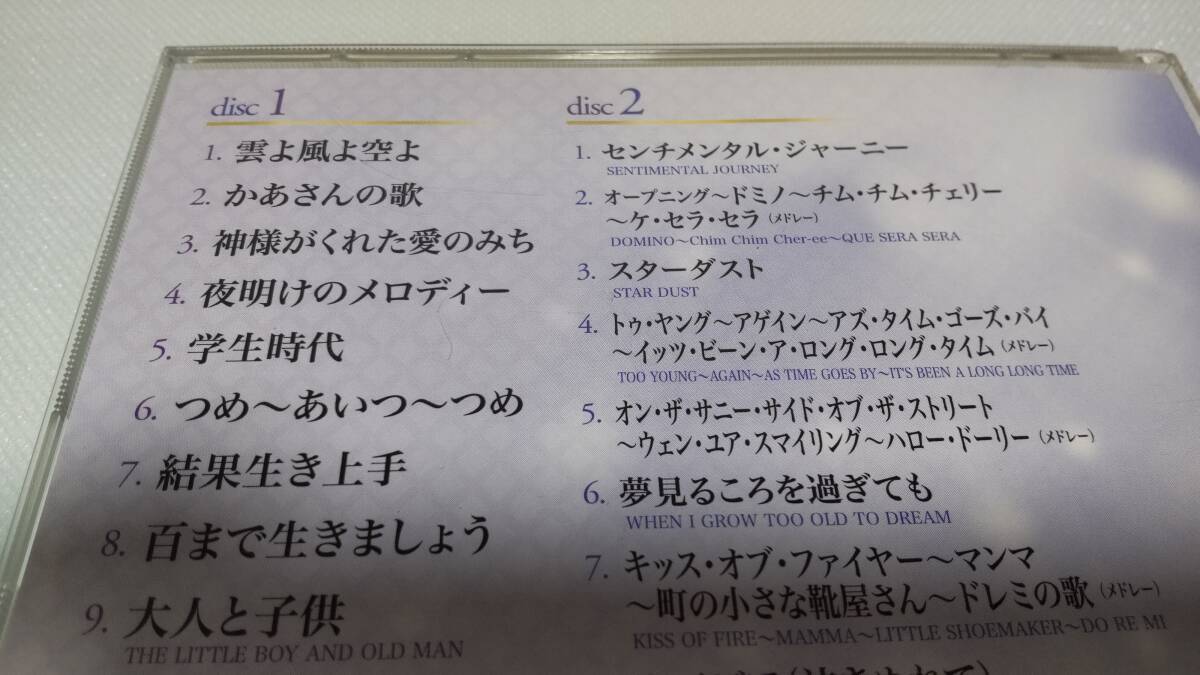 disc 1
1. 雲よ風よ空よ
2. かあさんの歌
3. 神様がくれた愛のみち
4. 夜明けのメロディー
5. 学生時代
6. つめ～あいつ～つめ
7. 結果生き上手
8. 百まで生きましょう
9. 大人と子供
THE LITTLE BOY AND OLD MAN
disc 2
1. センチメンタル・ジャーニー
SENTIMENTAL JOURNEY
2. オープニング～ドミノ～チム・チム・チェリー
～ケ・セラ・セラ（メドレー）
DOMINO～Chim Chim Cher-ee～QUE SERA SERA
3. スターダスト
STAR DUST
4. トゥ・ヤング～アゲイン～アズ・タイム・ゴーズ・バイ
～イッツ・ビーン・ア・ロング・ロング・タイム（メドレー）
TOO YOUNG～AGAIN～AS TIME GOES BY～IT'S BEEN A LONG LONG TIME
5. オン・ザ・サニー・サイド・オブ・ザ・ストリート
～ウェン・ユア・スマイリング～ハロー・ドーリー（メドレー）
6. 夢見るころを過ぎても
WHEN I GROW TOO OLD TO DREAM
7. キッス・オブ・ファイヤー～マンマ
～町の小さな靴屋さん～ドレミの歌（メドレー）
KISS OF FIRE～MAMMA～LITTLE SHOEMAKER～DO RE MI